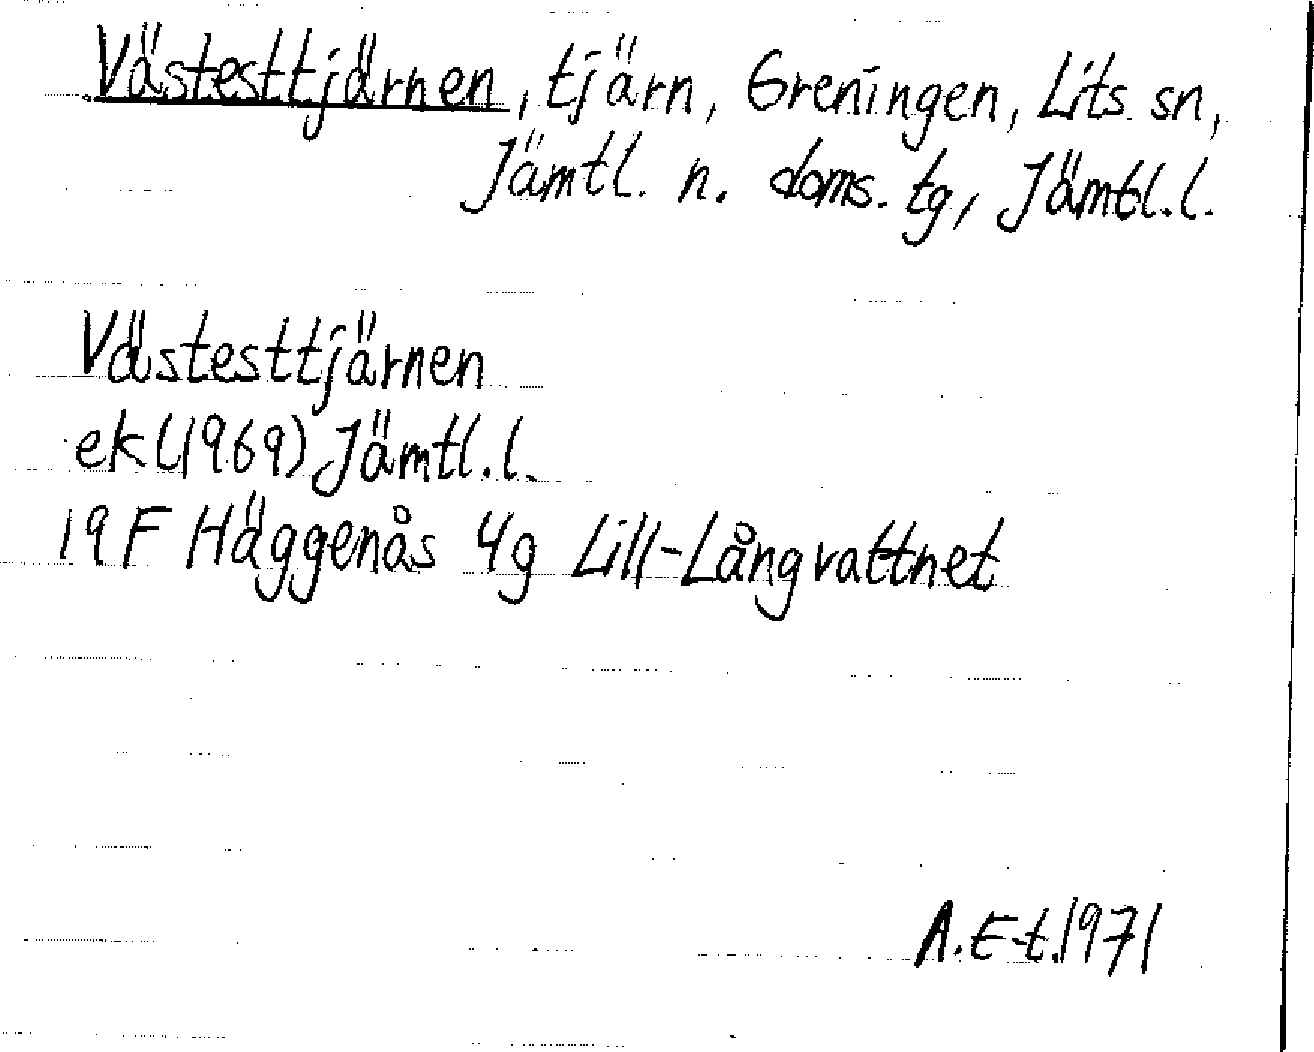 Västesttjärnen, tjärn, Greningen, Lits sn,
Jämtl. n. doms. tg, Jämtl.l.
Västesttjärnen
ek (1969) Jämtl.l.
19F Häggenås 4g Lill-Långvattnet
A.E-t. 1971